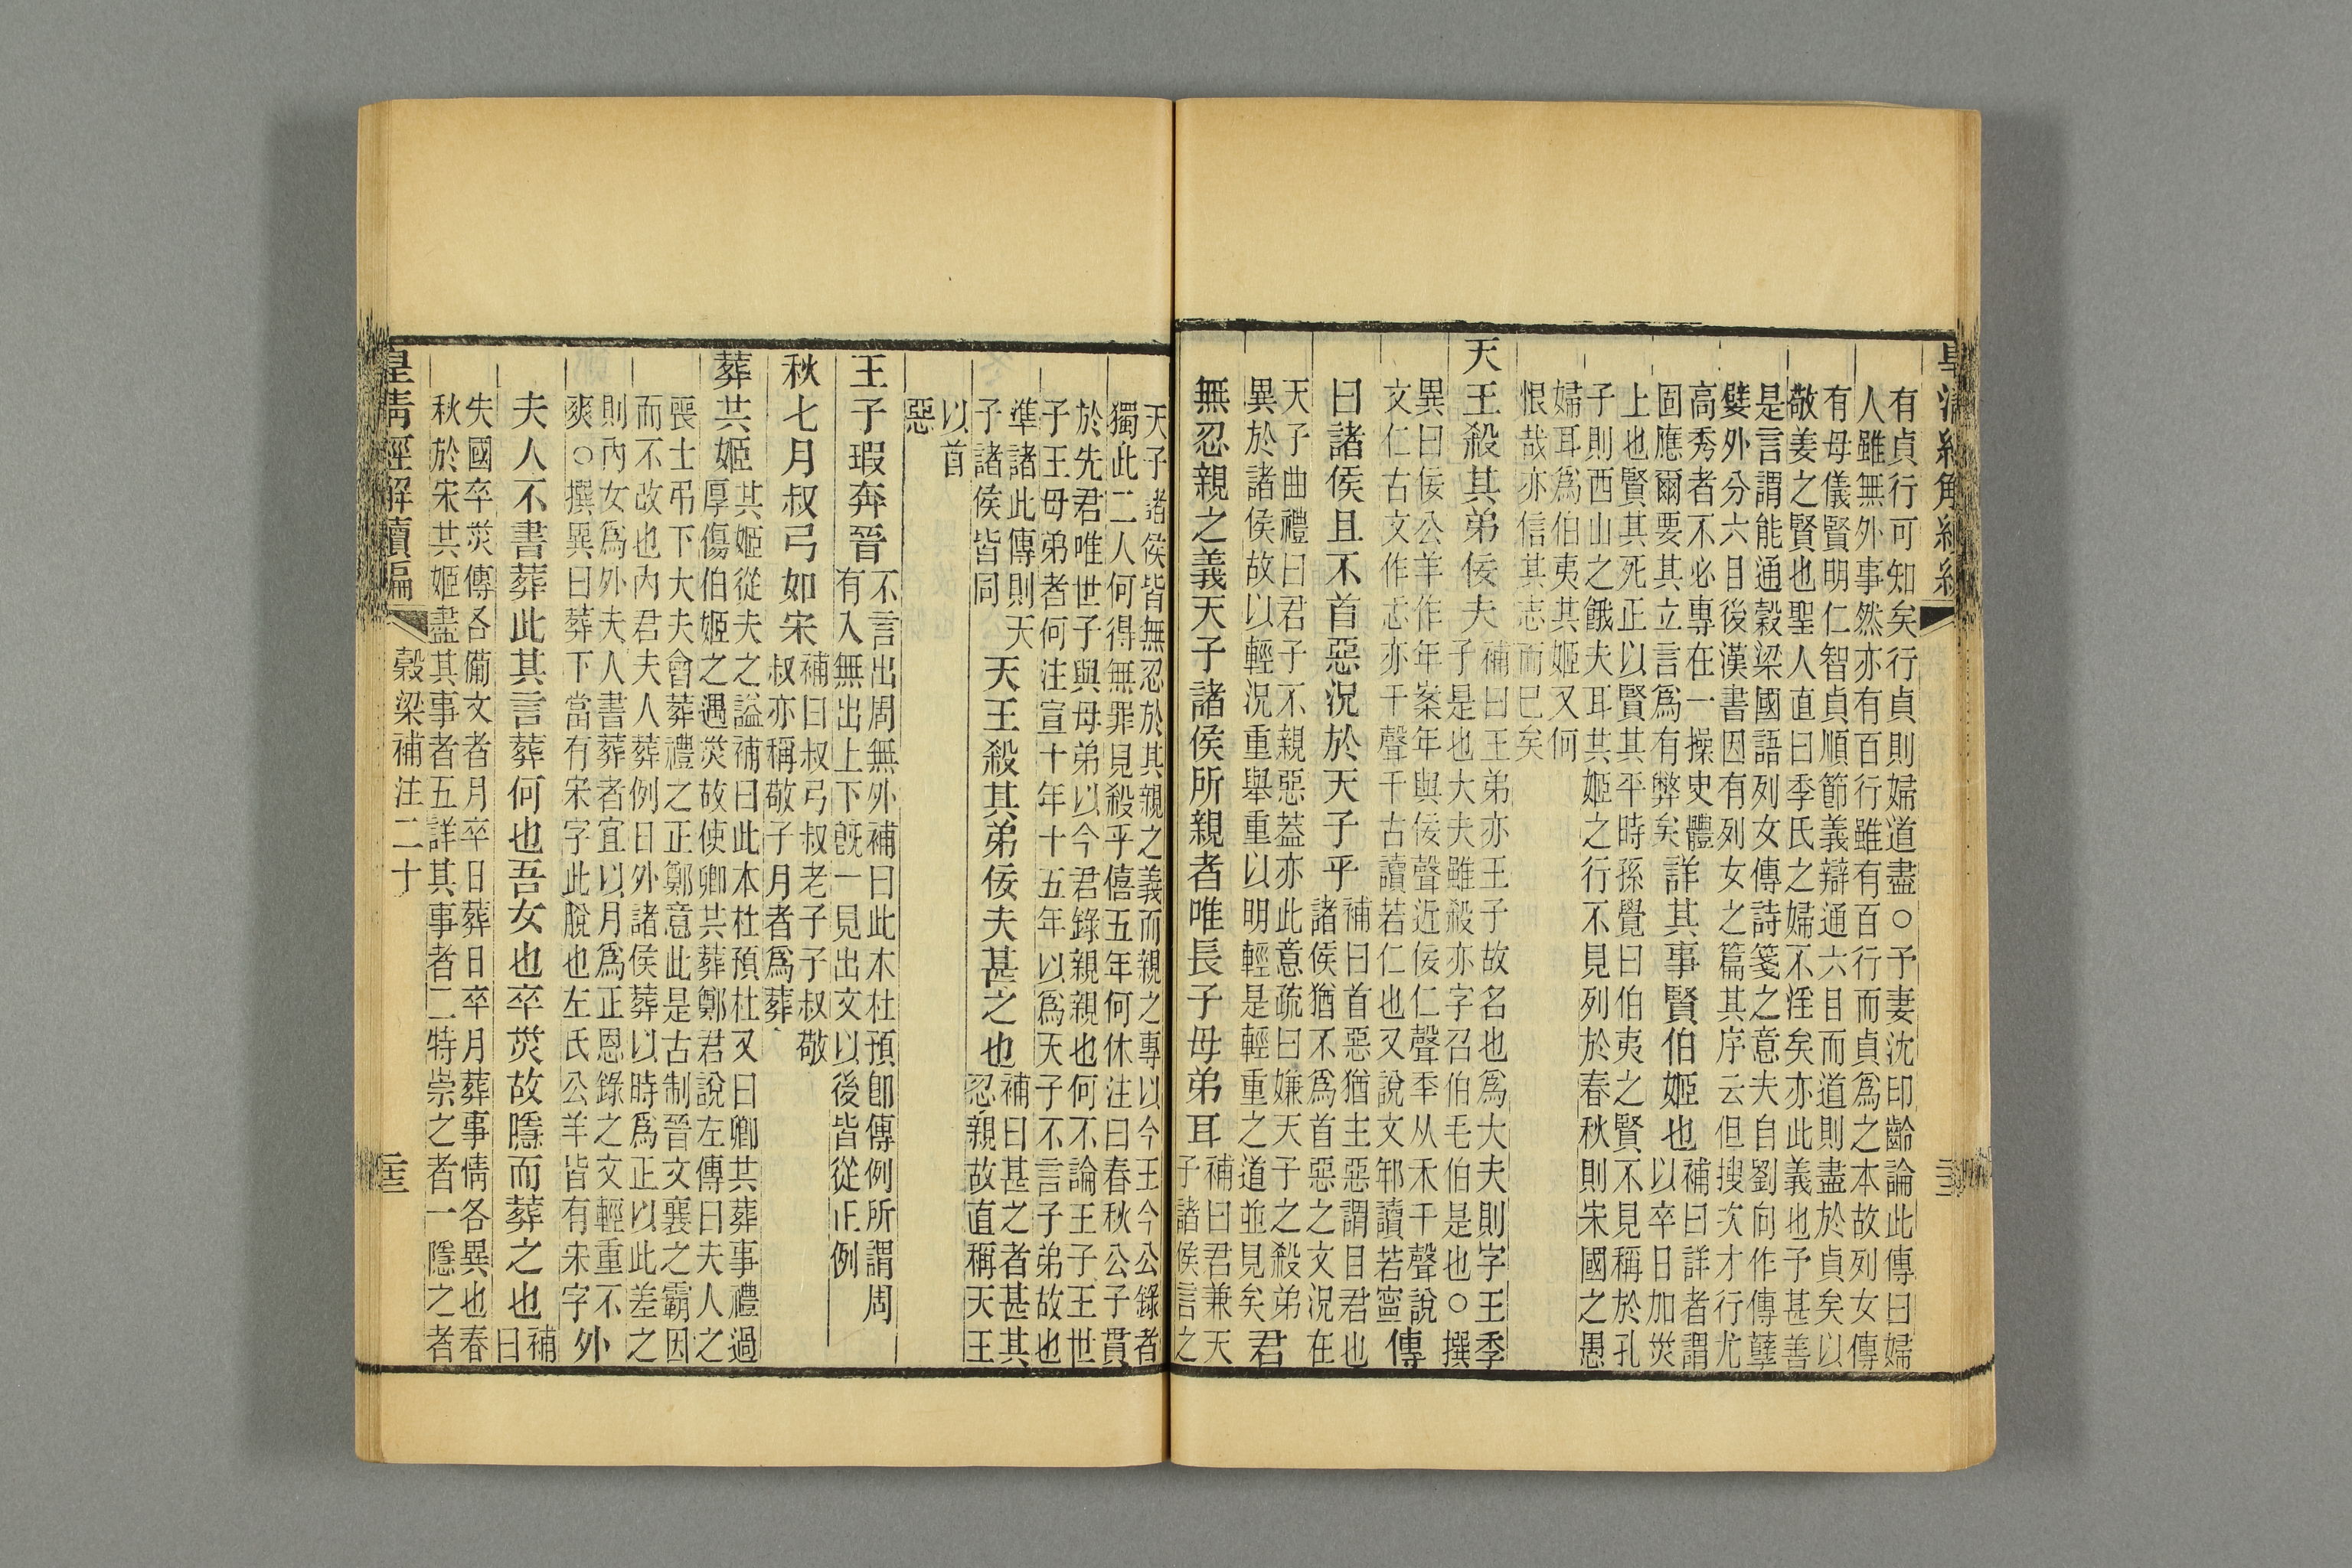 有貞行可知矣行貞則婦道盡○予妻沈印齡論此傳曰婦
人雖無外事然亦有百行雖有百行而貞爲之本故列女傳
有母儀賢明仁智貞順節義辯通六目而道則盡於貞矣以
敬姜之賢也聖人直曰季氏之婦不淫矣亦此義也予甚善
是言謂能通穀梁國語列女傳詩箋之意夫自劉向作傳孽
嬖外分六目後漢書因有列女之篇其序云但搜次才行尤
高秀者不必專在一操史體
固應爾要其立言爲有弊矣
詳其事賢伯姬也
補曰詳者謂
以卒日加災
上也賢其死正以賢其平時孫覺曰伯夷之賢不見稱於孔
子則西山之餓夫耳共姬之行不見列於春秋則宋國之愚
婦耳爲伯夷共姬又何
恨哉亦信其志而已矣
天王殺其弟佞夫
補曰王弟亦王子故名也爲大夫則字王季
子是也大夫雖殺亦字召伯毛伯是也○撰
異曰佞公羊作年案年與佞聲近佞仁聲秊从禾千聲說
文仁古文作忎亦千聲千古讀若仁也又說文邾讀若寧
傳
曰諸侯且不首惡況於天子乎
補曰首惡猶主惡謂目君也
諸侯猶不爲首惡之文況在
天子曲禮曰君子不親惡蓋亦此意疏曰嫌天子之殺弟
異於諸侯故以輕況重舉重以明輕是輕重之道並見矣
君
無忍親之義天子諸侯所親者唯長子母弟耳
補曰君兼天
子諸侯言之
天子諸侯皆無忍於其親之義而親之專以今王今公錄者
獨此二人何得無罪見殺乎僖五年何休注曰春秋公子貫
於先君唯世子與母弟以今君錄親親也何不論王子王世
子王母弟者何注宣十年十五年以爲天子不言子弟故也
準諸此傳則天
子諸侯皆同
天王殺其弟佞夫甚之也
補曰甚之者甚其
忍親故直稱天王
以首
惡
王子瑕奔晉
不言出周無外補曰此木杜預卽傳例所謂周
有入無出上下旣一見出文以後皆從正例
秋七月叔弓如宋
補曰叔弓叔老子子叔敬
叔亦稱敬子月者爲葬
葬共姬
共姬從夫之謚補曰此本杜預杜又曰卿共葬事禮過
厚傷伯姬之遇災故使卿共葬鄭君說左傳曰夫人之
喪士弔下大夫會葬禮之正鄭意此是古制晉文襄之霸因
而不改也內君夫人葬例日外諸侯葬以時爲正以此差之
則內女爲外夫人書葬者宜以月爲正恩錄之文輕重不
爽○撰異曰葬下當有宋字此脫也左氏公羊皆有宋字
外
夫人不書葬此其言葬何也吾女也卒災故隱而葬之也
補
曰
失國卒災傳各備文者月卒日葬日卒月葬事情各異也春
秋於宋共姬盡其事者五詳其事者二特崇之者一隱之者
皇清經解續編
穀梁補注二十